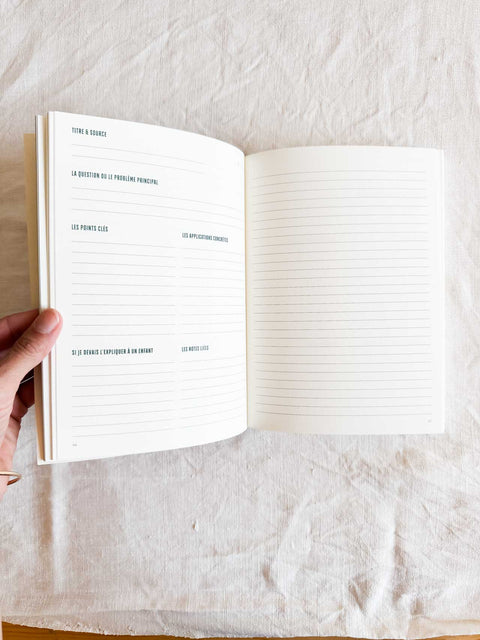 TITRE & SOURCE
LA QUESTION OU LE PROBLÈME PRINCIPAL
LES POINTS CLÉS
LES APPLICATIONS CONCRÈTES
SI JE DEVAIS L'EXPLIQUER À UN ENFANT
LES NOTES LIÉES